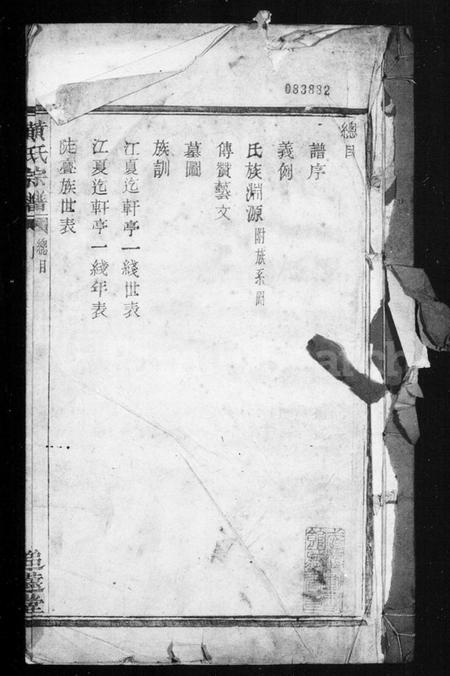 083882
總目
譜序
義例
氏族淵源附族系圖
傳贊藝文
墓圖
族訓
江夏迄軒亭一綫世表
江夏迄軒亭一綫年表
陡亹族世表
黃氏宗譜
總目
追遠堂